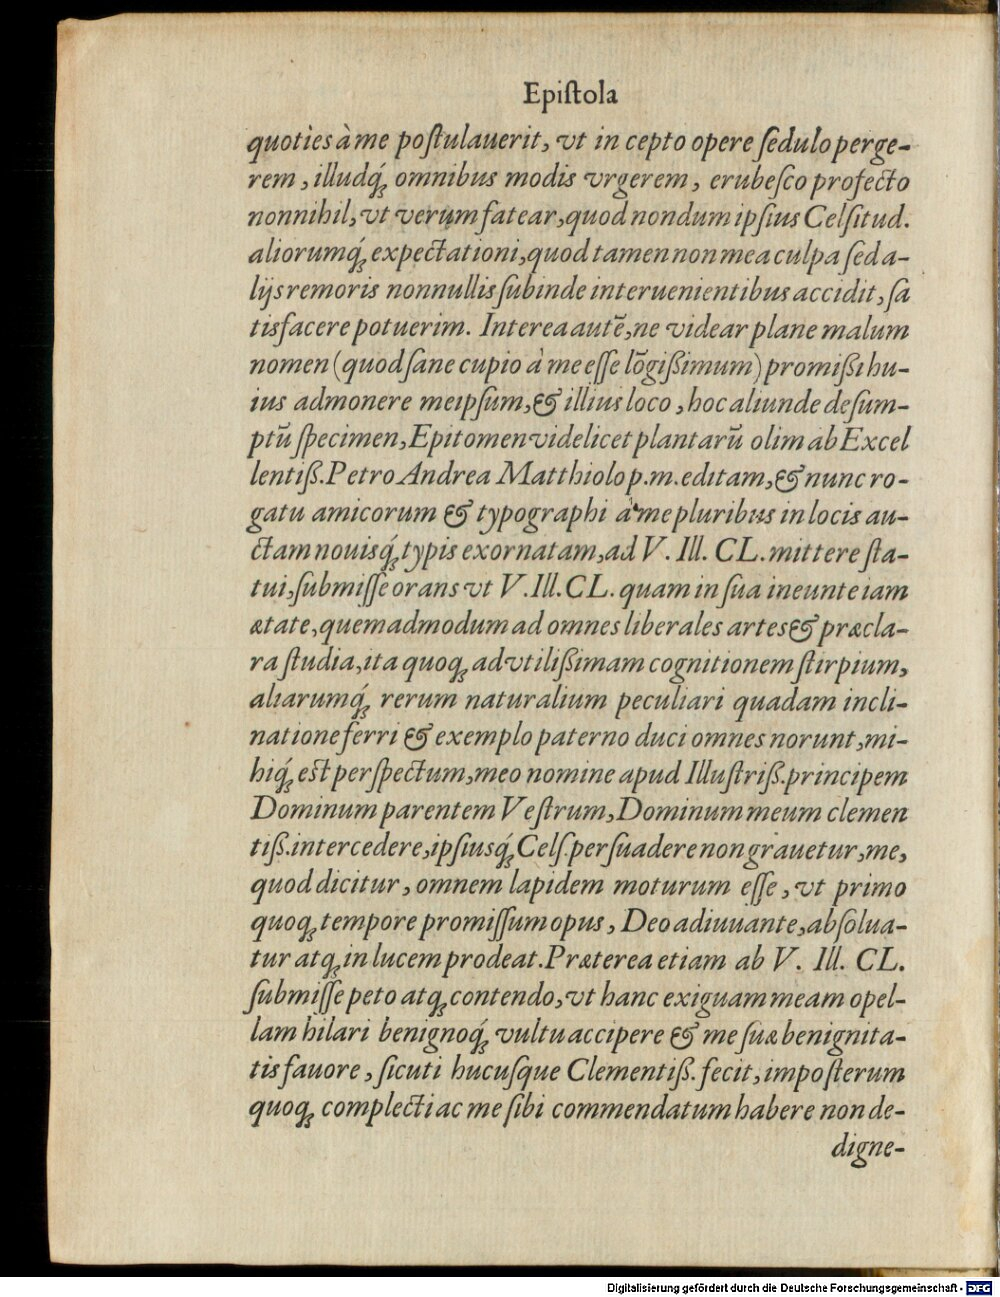 Epiſtola
quoties à me poſtulauerit, vt in cepto opere ſedulo perge-
rem, illudq́; omnibus modis vrgerem, erubeſco profecto
nonnihil, vt verum fatear, quod nondum ipſius Celſitud.
aliorumq́; expectationi, quod tamen non mea culpa ſed a-
lijs remoris nonnullis ſubinde interuenientibus accidit, ſa
tisfacere potuerim. Interea autē, ne videar plane malum
nomen (quod ſane cupio à me eſſe lōgißimum) promißi hu-
ius admonere meipſum, & illius loco, hoc aliunde deſum-
ptū ſpecimen, Epitomen videlicet plantarū olim ab Excel
lentiß. Petro Andrea Matthiolo p. m. editam, & nunc ro-
gatu amicorum & typographi à me pluribus in locis au-
ctam nouisq́; typis exornatam, ad V. Ill. CL. mittere ſta-
tui, ſubmiſſe orans vt V. Ill. CL. quam in ſua ineunte iam
ætate, quemadmodum ad omnes liberales artes & præcla-
ra ſtudia, ita quoq; ad vtilißimam cognitionem ſtirpium,
aliarumq́; rerum naturalium peculiari quadam incli-
natione ferri & exemplo paterno duci omnes norunt, mi-
hiq́; est perſpectum, meo nomine apud Illuſtriß. principem
Dominum parentem Veſtrum, Dominum meum clemen
tiß. intercedere, ipſiusq́; Celſ. perſuadere non grauetur, me,
quod dicitur, omnem lapidem moturum eſſe, vt primo
quoq; tempore promiſſum opus, Deo adiuuante, abſolua-
tur atq; in lucem prodeat. Præterea etiam ab V. Ill. CL.
ſubmiſſe peto atq; contendo, vt hanc exiguam meam opel-
lam hilari benignoq́; vultu accipere & me ſuæ benignita-
tis fauore, ſicuti hucuſque Clementiß. fecit, impoſterum
quoq; complecti ac me ſibi commendatum habere non de-
digne-
Digitalisierung gefördert durch die Deutsche Forschungsgemeinschaft - DFG